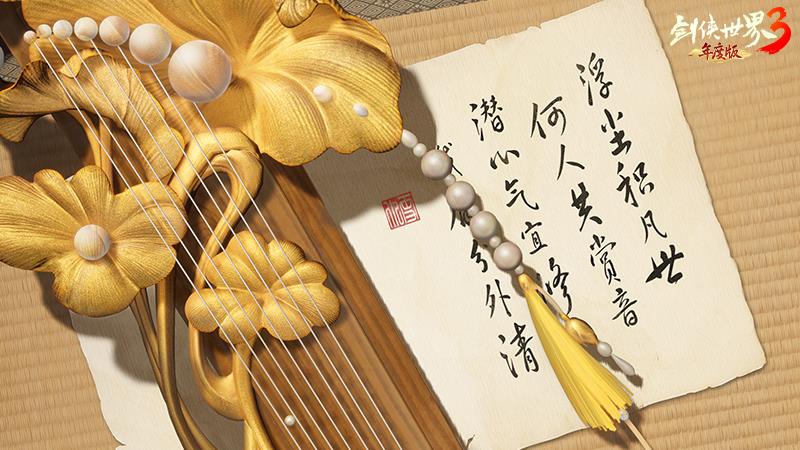 剑侠世界3
年度版
浮尘积凡世
何人共赏音
潜心气宜修
分外清